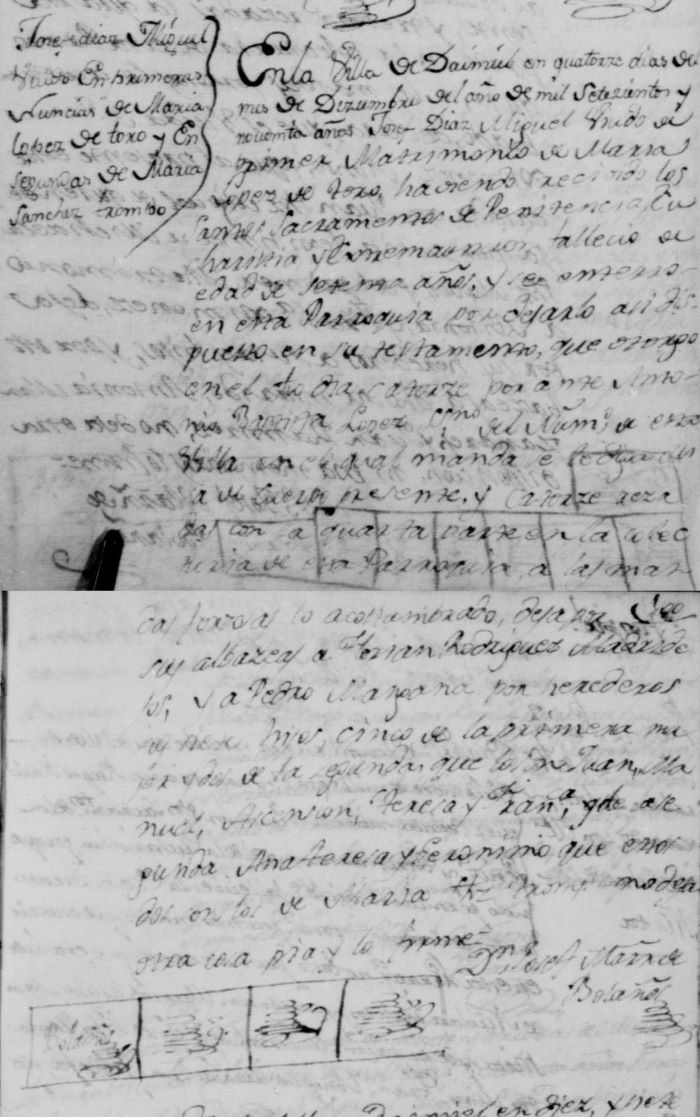 Josef diaz Miguel
Viudo En primeras
Nuncias de Maria
Lopez de toro y En
segundas de Maria
Sanchez trompo
En la Villa de Daimiel en quatorze dias del
mes de Diziembre del año de mil Setezientos y
noventa años Josef Diaz Miguel Viudo de
primer Matrimonio de Maria
Lopez de toro, haviendo recivido los
Santos Sacramentos de Penitencia, Eu
charistia y Extremauncion fallecio de
edad de setenta años, y se enterro
en esta Parroquia por dejarlo asi dis
puesto en su testamento, que otorgo
en el dho dia catorze por ante Anto
nio Baptista Lopez Ssno del Numo de esta
Villa en el qual manda se le diga
de cuerpo presente, y catorze reza
das con la quarta parte en la colec
turia de esta Parroquia, a las man
das forzosas lo acostumbrado, deja por
sus albazeas a Rodriguez Madride
jos, y a Pedro Manzana por herederos
hijos, cinco de la primera mu
jer y dos de la segunda, que los son Juan, Ma
nuel, Ascension, Teresa y Franca, y de la se
gunda Ana teresa y Geronimo que estos
dos son los de Maria Shz no deja
otra cosa pia y lo firme
Dn Josef Mañn de
Bolaños
Bolaños
en Diez, y siete